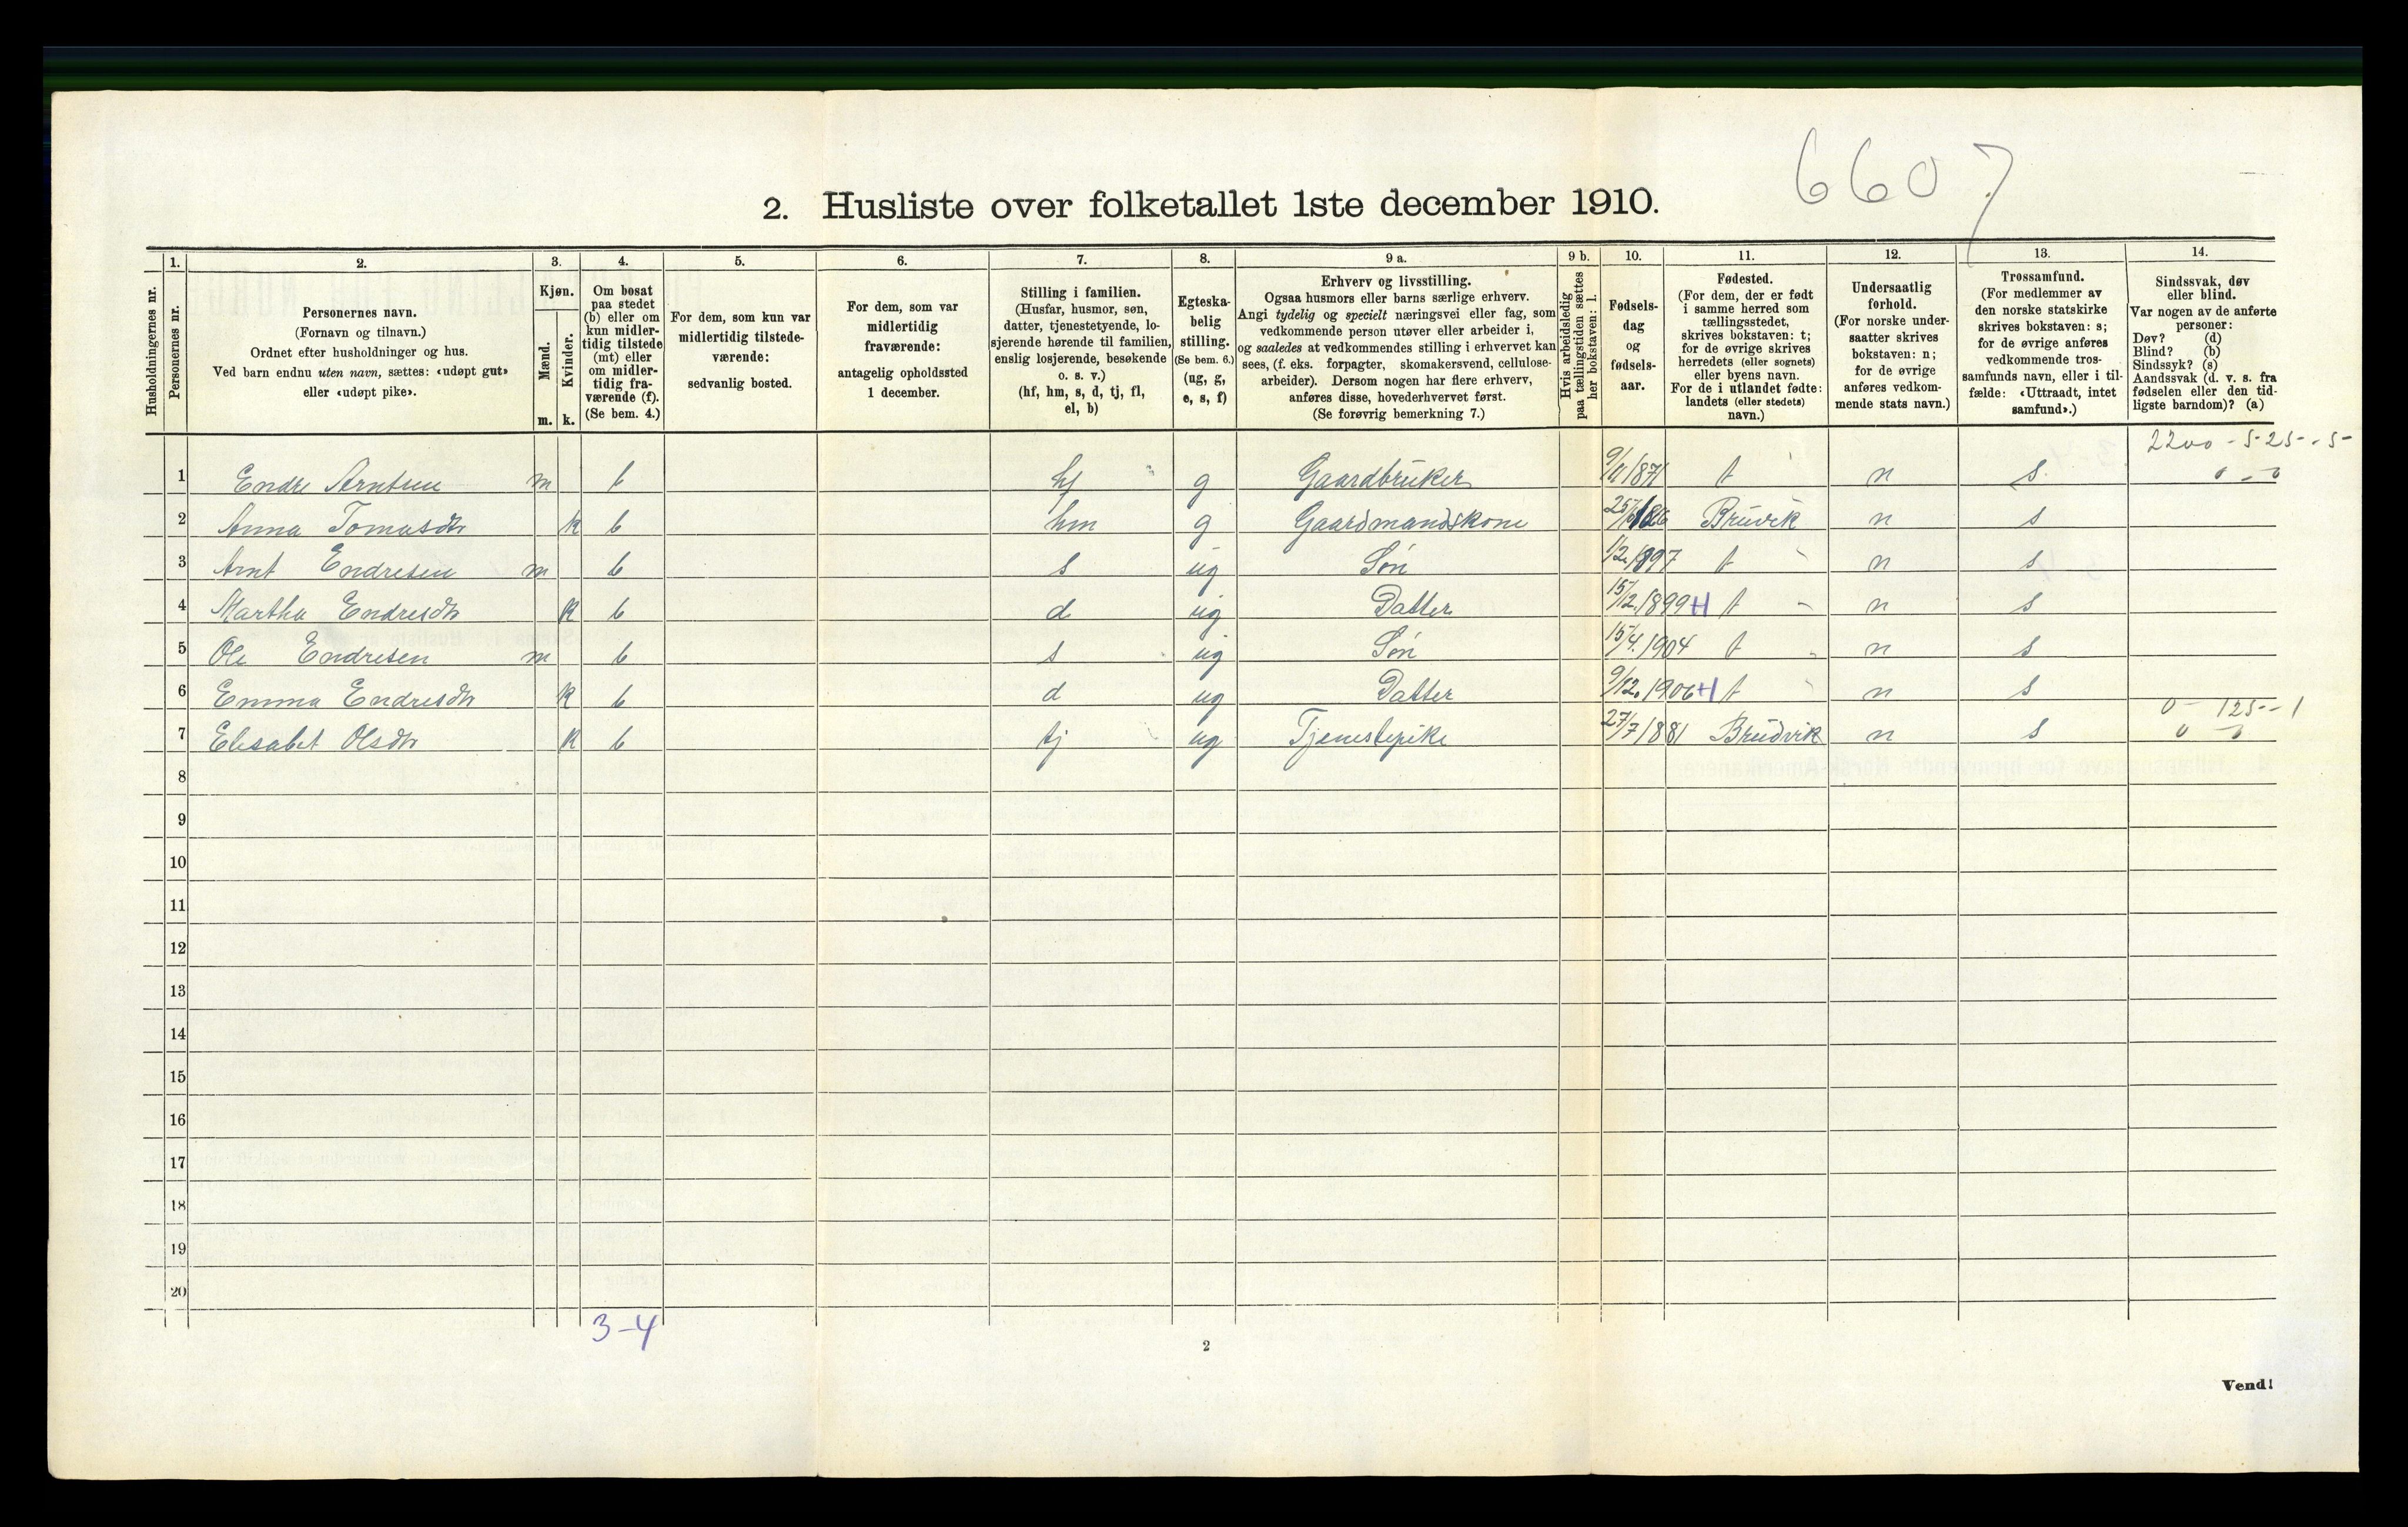 6607
2. Husliste over folketallet 1ste december 1910.
Husholdningernes nr.
1.
Personernes nr.
2.
Personernes navn.
(Fornavn og tilnavn.)
Ordnet efter husholdninger og hus.
Ved barn endnu uten navn, sættes: «udøpt gut»
eller «udøpt pike».
3.
Kjøn.
Mænd.
Kvinder.
m. k.
4.
Om bosat
paa stedet
(b) eller om
kun midler-
tidig tilstede
(mt) eller
om midler-
tidig fra-
værende (f).
(Se bem. 4.)
5.
For dem, som kun var
midlertidig tilstede-
værende:
sedvanlig bosted.
6.
For dem, som var
midlertidig
fraværende:
antagelig opholdssted
1 december.
7.
Stilling i familien.
(Husfar, husmor, søn,
datter, tjenestetyende, lo-
sjerende hørende til familien,
enslig losjerende, besøkende
o. s. v.)
(hf, hm, s, d, tj, fl,
el, b)
8.
Egteska-
belig
stilling.
(Se bem. 6.)
(ug, g,
e, s, f)
9 a.
Erhverv og livsstilling.
Ogsaa husmors eller barns særlige erhverv.
Angi tydelig og specielt næringsvei eller fag, som
vedkommende person utøver eller arbeider i,
og saaledes at vedkommendes stilling i erhvervet kan
sees, (f. eks. forpagter, skomakersvend, cellulose-
arbeider). Dersom nogen har flere erhverv,
anføres disse, hovederhvervet først.
(Se forøvrig bemerkning 7.)
9 b.
Hvis arbeidsledig
paa tællingstiden sættes
her bokstaven: l.
10.
Fødsels-
dag
og
fødsels-
aar.
11.
Fødested.
(For dem, der er født
i samme herred som
tællingsstedet,
skrives bokstaven: t;
for de øvrige skrives
herredets (eller sognets)
eller byens navn.
For de i utlandet fødte:
landets (eller stedets)
navn.)
12.
Undersaatlig
forhold.
(For norske under-
saatter skrives
bokstaven: n;
for de øvrige
anføres vedkom-
mende stats navn.)
13.
Trossamfund.
(For medlemmer av
den norske statskirke
skrives bokstaven: s;
for de øvrige anføres
vedkommende tros-
samfunds navn, eller i til-
fælde: «Uttraadt, intet
samfund».)
14.
Sindssvak, døv
eller blind.
Var nogen av de anførte
personer:
Døv? (d)
Blind? (b)
Sindssyk? (s)
Aandssvak (d. v. s. fra
fødselen eller den tid-
ligste barndom)? (a)
2200 - 5-25 - 5-
1 Endre Arntsen m b hf g Gaardbruker 9/11 1871 t n s 0 - 0
2 Anna Tomasdtr k b hm g Gaardmandskone Bruvik n s
3 Arnt Endresen m b s ug Søn 1/2 1897 t n s
4 Martha Endresdtr k b d ug Datter 15/12 1899 H t n s
5 Ole Endresen m b s ug Søn 15/4 1904 t n s
6 Emma Endresdtr k b d ug Datter 9/12 1906 H t n s
0 - 125 - 1
7 Elisabet Olsdtr k b tj ug Tjenestepike 27/7 1881 Brudvik n s 0 - 0
8
9
10
11
12
13
14
15
16
17
18
19
20
3-4
2
Vend!